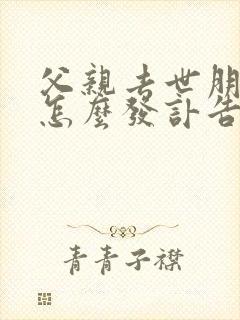 父親去世朋
怎麼發訃告
青青子襟